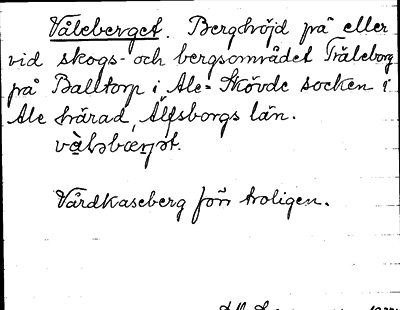 Våleberget. Berghöjd på eller
vid skogs- och bergsområdet Träleborg
på Balltorp i Ale-Skövde socken i
Ale härad, Älfsborgs län.
Vårdkaseberg förr troligen.